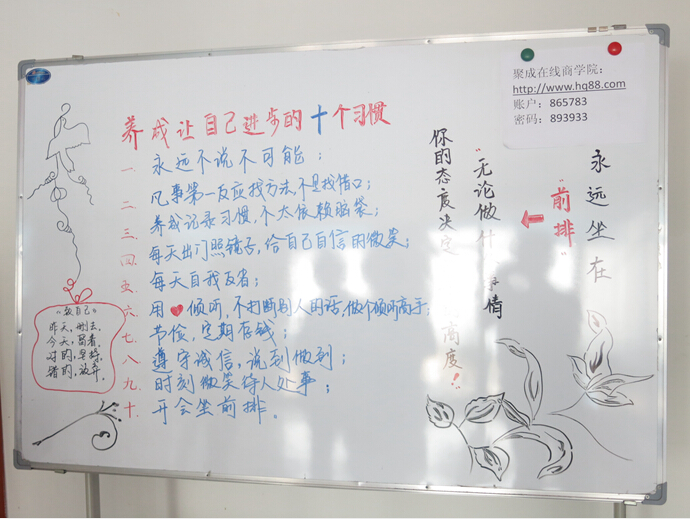 养成让自己进步的十个习惯
一、永远不说不可能；
二、凡事第一反应找方法，不是找借口；
三、养成记录习惯，不太依赖脑袋；
四、每天出门照镜子，给自己自信的微笑；
五、每天自我反省；
六、用❤倾听，不打断别人的话，做个倾听高手；
七、节俭，定期存钱；
八、遵守诚信，说到做到；
九、时刻微笑待人处事；
十、开会坐前排。
《致自己》
昨天，删去。
今天，留着。
对的，坚持。
错的，放弃。
聚成在线商学院：
http://www.hq88.com
账户：865783
密码：893933
永远坐在
“前排”
“无论做什 事情
你的态度决定 高度！”